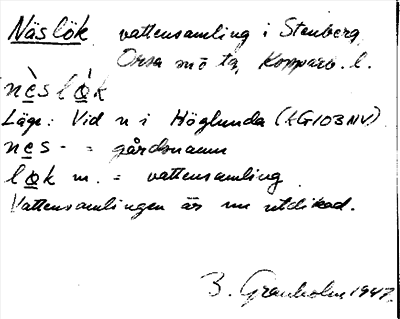 Näslök vattensamling i Stenberg,
Orsa sn o tg, Kopparb. l.
nèslǫ̀k
Läge: Vid n i Höglunda (LG103NV).
nes- = gårdsnamn
lǫk m. = vattensamling
Vattensamlingen är nu utdikad.
B. Granholm 1947.